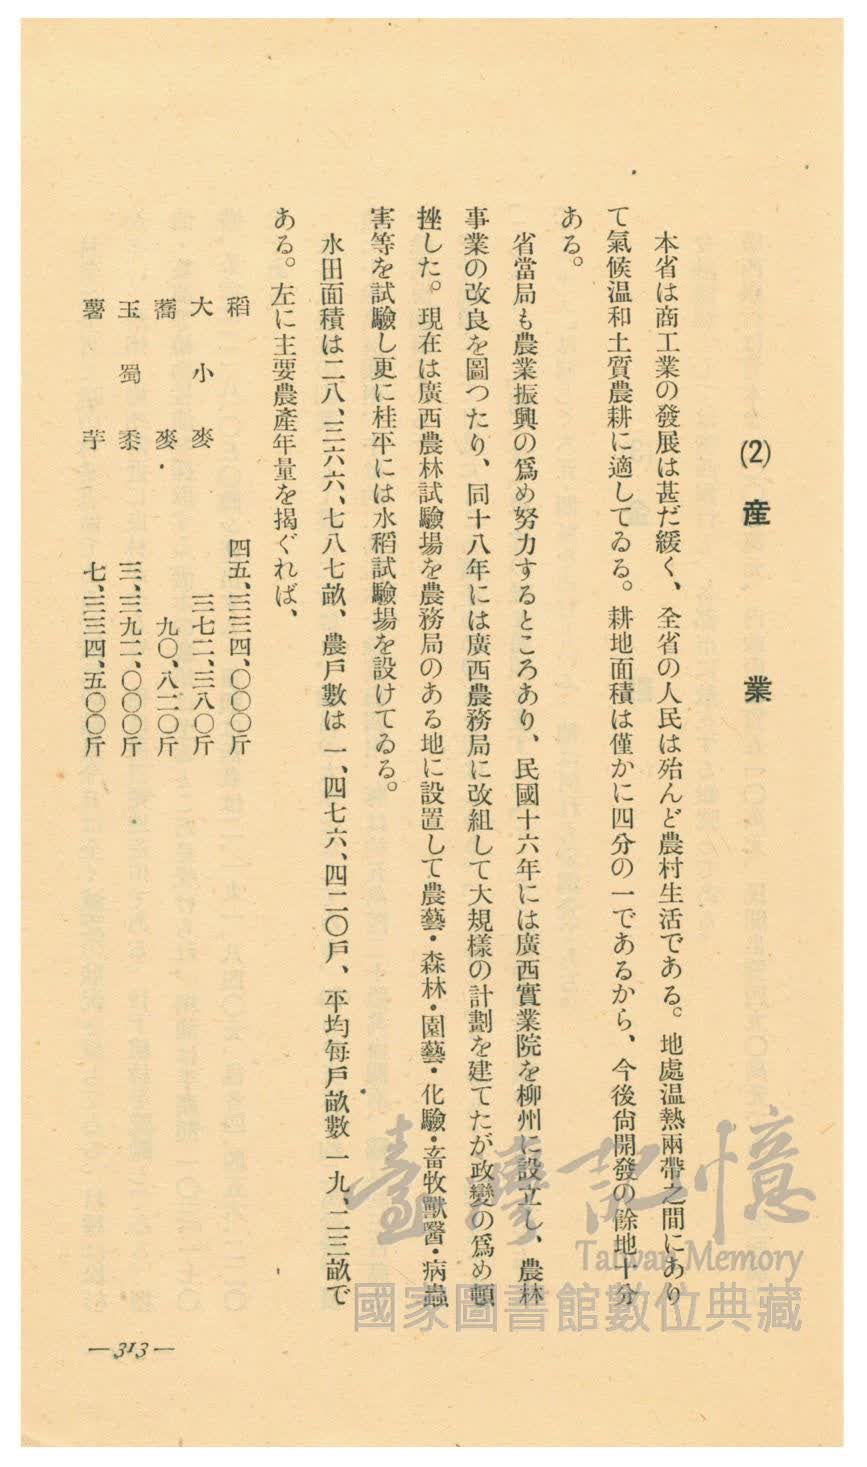 (2) 産業
本省は商工業の發展は甚だ緩く、全省の人民は殆んど農村生活である。地處温熱兩帶之間にあり
て氣候温和土質農耕に適してゐる。耕地面積は僅かに四分の一であるから、今後尙開發の餘地十分
ある。
省當局も農業振興の爲め努力するところあり、民國十六年には廣西實業院を柳州に設立し、農林
事業の改良を圖つたり、同十八年には廣西農務局に改組して大規樣の計劃を建てたが政變の爲め頓
挫した。現在は廣西農林試驗場を農務局のある地に設置して農藝・森林・園藝・化驗・畜牧獸醫・病蟲
害等を試驗し更に桂平には水稻試驗場を設けてゐる。
水田面積は二八、三六六、七八七畝、農戸數は一、四七六、四二〇戸、平均每戸畝數一九、二三畝で
ある。左に主要農產年量を揭ぐれば、
稻 四五、三三四、〇〇〇斤
大小麥 三七二、三八〇斤
蕎麥 九〇、八二〇斤
玉蜀黍 三、三九二、〇〇〇斤
薯芋 七、三三四、五〇〇斤
—313—
臺灣記憶
Taiwan Memory
國家圖書館數位典藏